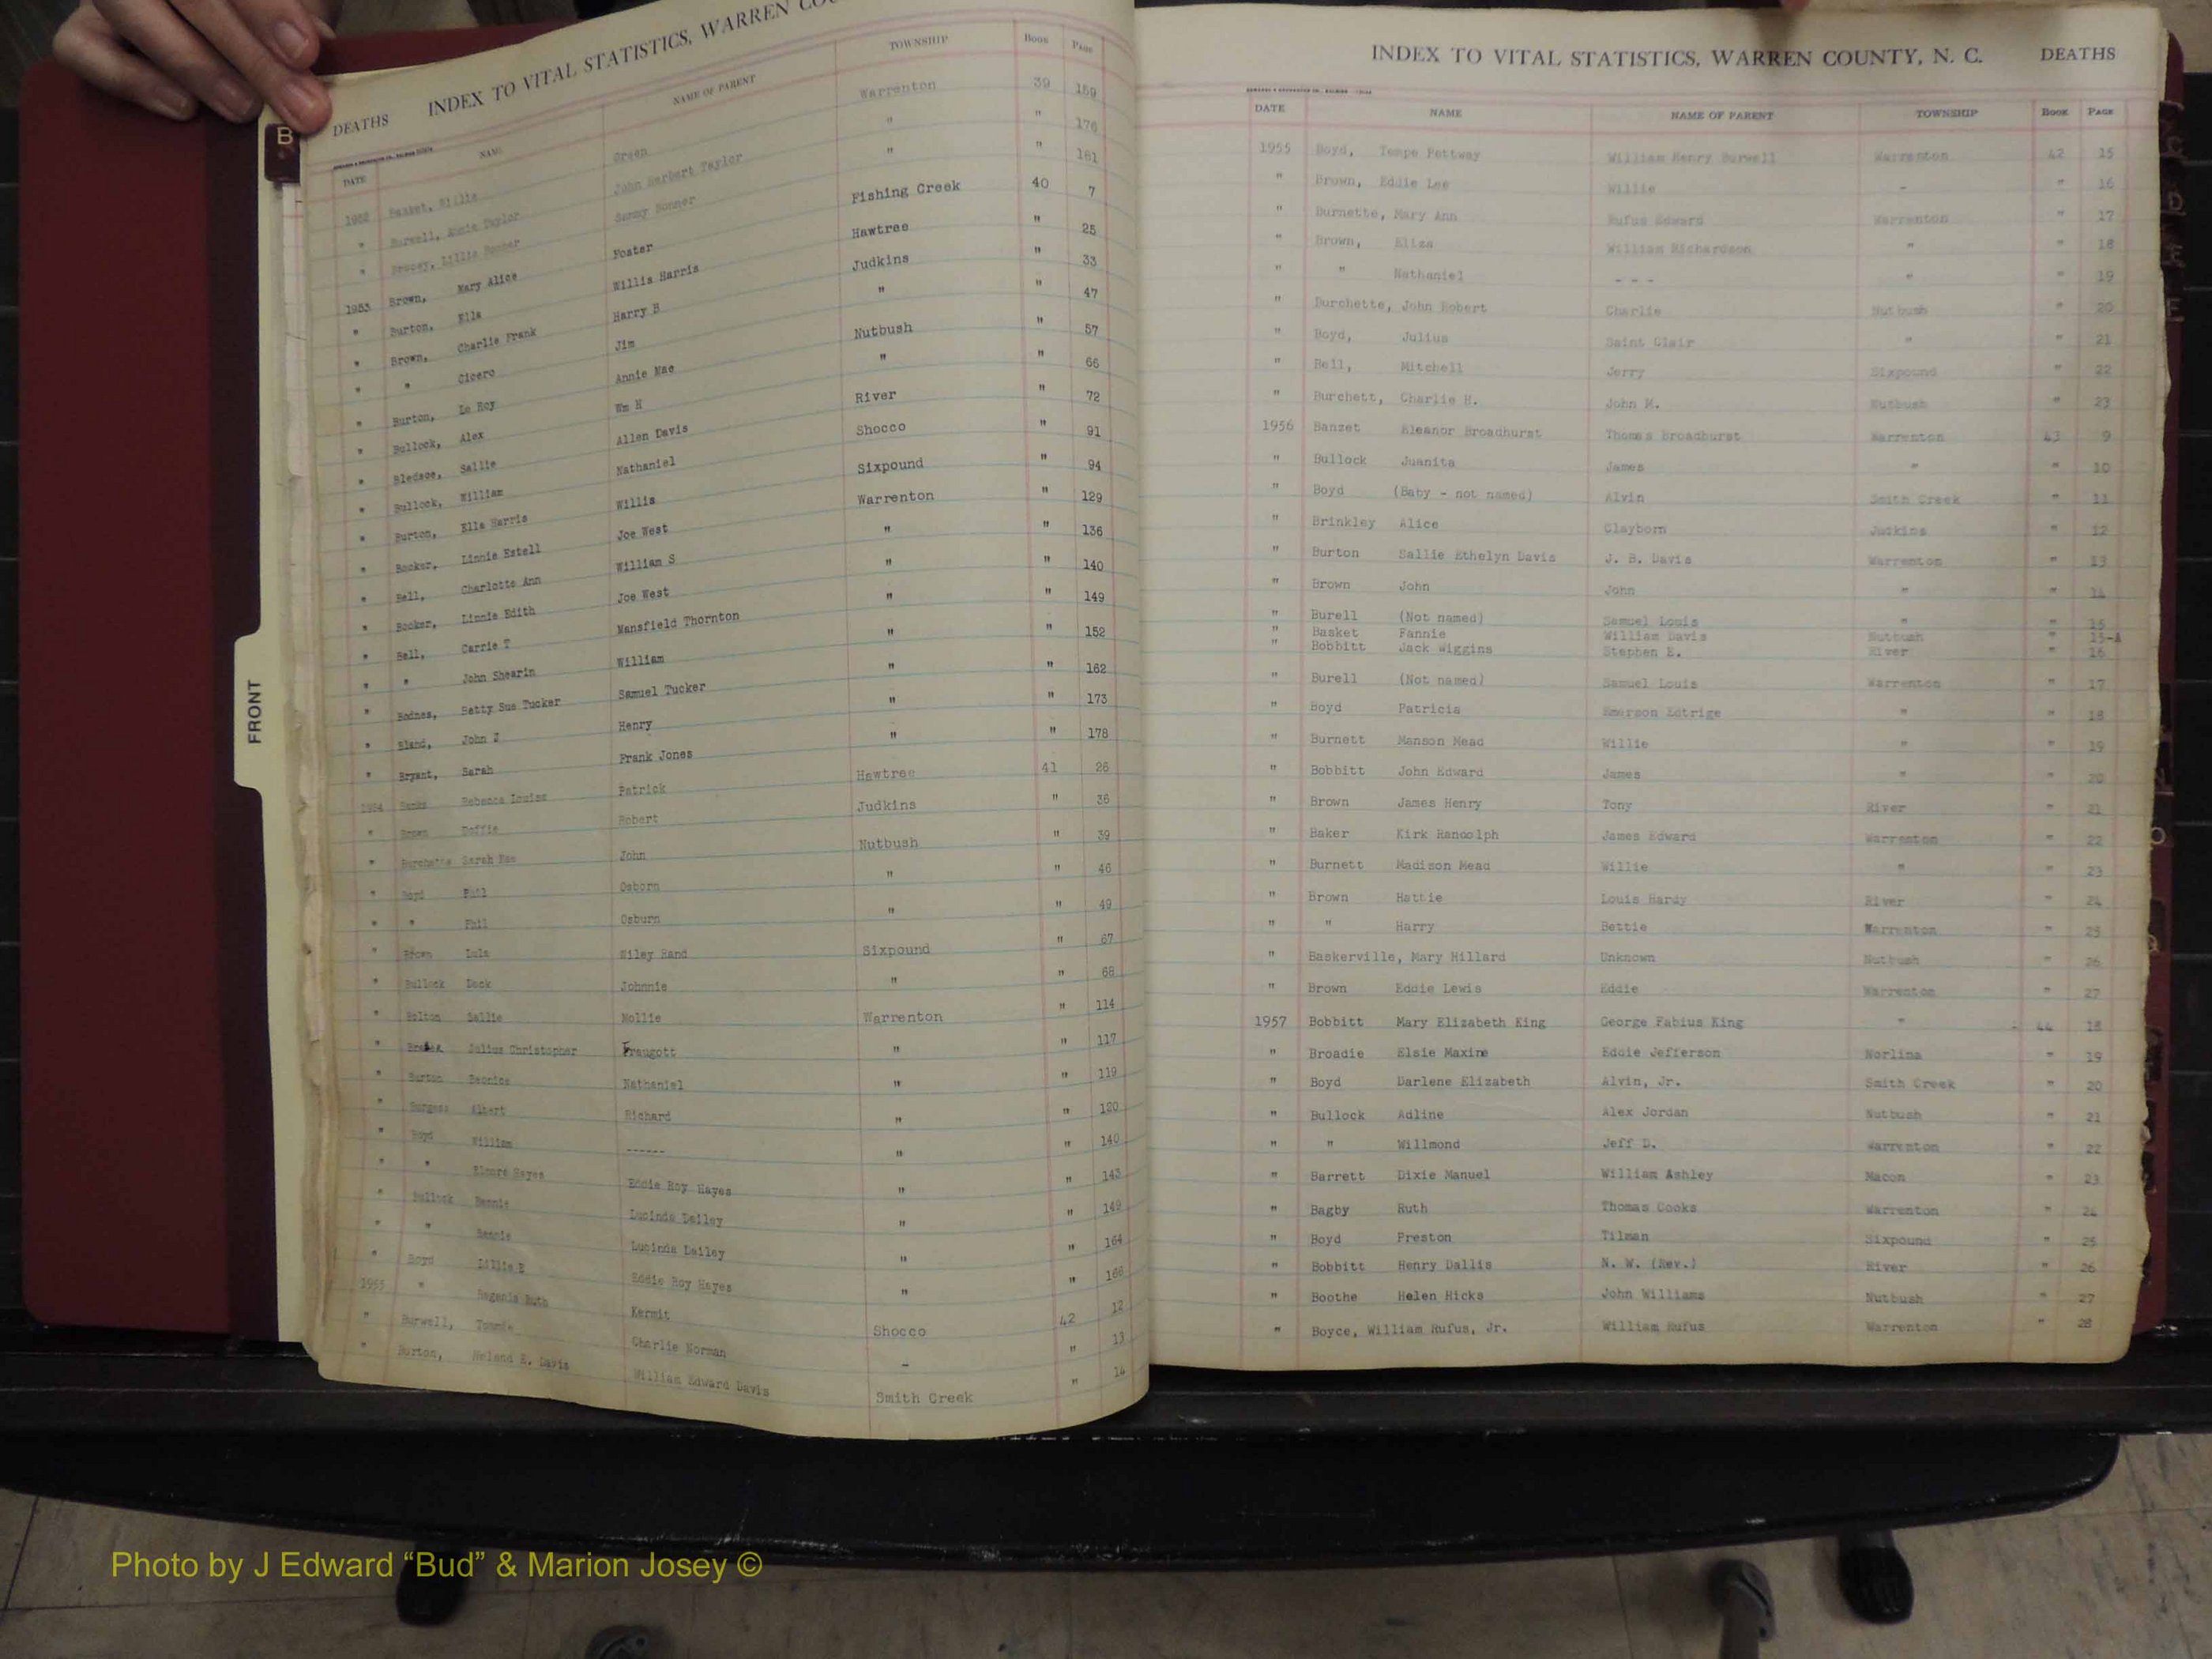 INDEX TO VITAL STATISTICS, WARREN
DEATHS
DATE NAME NAME OF PARENT TOWNSHIP BOOK PAGE
1952 Basket, Willie Green Warrenton 39 159
" Burwell, Annie Taylor John Herbert Taylor " " 176
" Lillie Bonner Sammy Bonner " " 181
1953 Brown, Mary Alice Foster Fishing Creek 40 7
" Burton, Ella Willis Harris Hawtree " 25
" Brown, Charlie Frank Harry B Judkins " 33
" " Cicero Jim " " 47
" Burton, Le Roy Annie Mae Nutbush " 57
" Bullock, Alex Wm H " " 66
" Bledsoe, Sallie Allen Davis River " 72
" Bullock, William Nathaniel Shocco " 91
" Burton, Ella Harris Willis Sixpound " 94
" Booker, Linnie Estell Joe West Warrenton " 129
" Bell, Charlotte Ann William S " " 136
" Booker, Linnie Edith Joe West " " 140
" Bell, Carrie T Mansfield Thornton " " 149
" " John Shearin William " " 152
" Bodnes, Betty Sue Tucker Samuel Tucker " " 162
" Bland, John J Henry " " 173
" Bryant, Sarah Frank Jones " " 178
1954 Banks Rebecca Louise Patrick Hawtree 41 26
" Brown Robert Judkins " 36
" Burchette Sarah Mae John Nutbush " 39
" Boyd Phil Osborn " " 46
" " Phil Osburn " " 49
" Brown Lula Wiley Rand Sixpound " 67
" Bullock Dock Johnnie " " 68
" Bolton Sallie Mollie Warrenton " 114
" Julius Christopher Fraugott " " 117
" Burton Bernice Nathaniel " " 119
" Burgess Albert Richard " " 120
" Boyd William ------ " " 140
" " Elmore Hayes Eddie Roy Hayes " " 143
" Bullock Bennie Lucinda Dailey " " 149
" " Bennie Lucinda Dailey " " 164
" Boyd Lillie B Eddie Roy Hayes " " 166
1955 " Regenia Ruth Kermit Shocco 42 12
" Burwell, Charlie Norman - " 13
" Burton, Heland E. Davis William Edward Davis Smith Creek " 14
INDEX TO VITAL STATISTICS, WARREN COUNTY, N. C. DEATHS
DATE NAME NAME OF PARENT TOWNSHIP BOOK PAGE
1955 Boyd, Tempe Pettway William Henry Burwell Warrenton 42 15
" Brown, Eddie Lee Willie - " 16
" Burnette, Mary Ann Rufus Edward Warrenton " 17
" Brown, Eliza William Richardson " " 18
" " Nathaniel - - - " " 19
" Burchette, John Robert Charlie Nutbush " 20
" Boyd, Julius Saint Clair " " 21
" Bell, Mitchell Jerry Sixpound " 22
" Burchett, Charlie H. John M. Nutbush " 23
1956 Banzet Eleanor Broadhurst Thomas Broadhurst Warrenton 43 9
" Bullock Juanita James " " 10
" Boyd (Baby - not named) Alvin Smith Creek " 11
" Brinkley Alice Clayborn Judkins " 12
" Burton Sallie Ethelyn Davis J. B. Davis Warrenton " 13
" Brown John John " " 14
" Burell (Not named) Samuel Louis " " 15
" Basket Fannie William Davis Nutbush " 15-A
" Bobbitt Jack Wiggins Stephen E. River " 16
" Burell (Not named) Samuel Louis Warrenton " 17
" Boyd Patricia Emerson Estrige " " 18
" Burnett Manson Mead Willie " " 19
" Bobbitt John Edward James " " 20
" Brown James Henry Tony River " 21
" Baker Kirk Randolph James Edward Warrenton " 22
" Burnett Madison Mead Willie " " 23
" Brown Hattie Louis Hardy River " 24
" " Harry Bettie Warrenton " 25
" Baskerville, Mary Hillard Unknown Nutbush " 26
" Brown Eddie Lewis Eddie Warrenton " 27
1957 Bobbitt Mary Elizabeth King George Fabius King " 44 18
" Broadie Elsie Maxine Eddie Jefferson Norlina " 19
" Boyd Darlene Elizabeth Alvin, Jr. Smith Creek " 20
" Bullock Adline Alex Jordan Nutbush " 21
" " Willmond Jeff D. Warrenton " 22
" Barrett Dixie Manuel William Ashley Macon " 23
" Bagby Ruth Thomas Cooks Warrenton " 24
" Boyd Preston Tilman Sixpound " 25
" Bobbitt Henry Dallis N. W. (Rev.) River " 26
" Boothe Helen Hicks John Williams Nutbush " 27
" Boyce, William Rufus, Jr. William Rufus Warrenton " 28
B
FRONT
Photo by J Edward “Bud” & Marion Josey ©